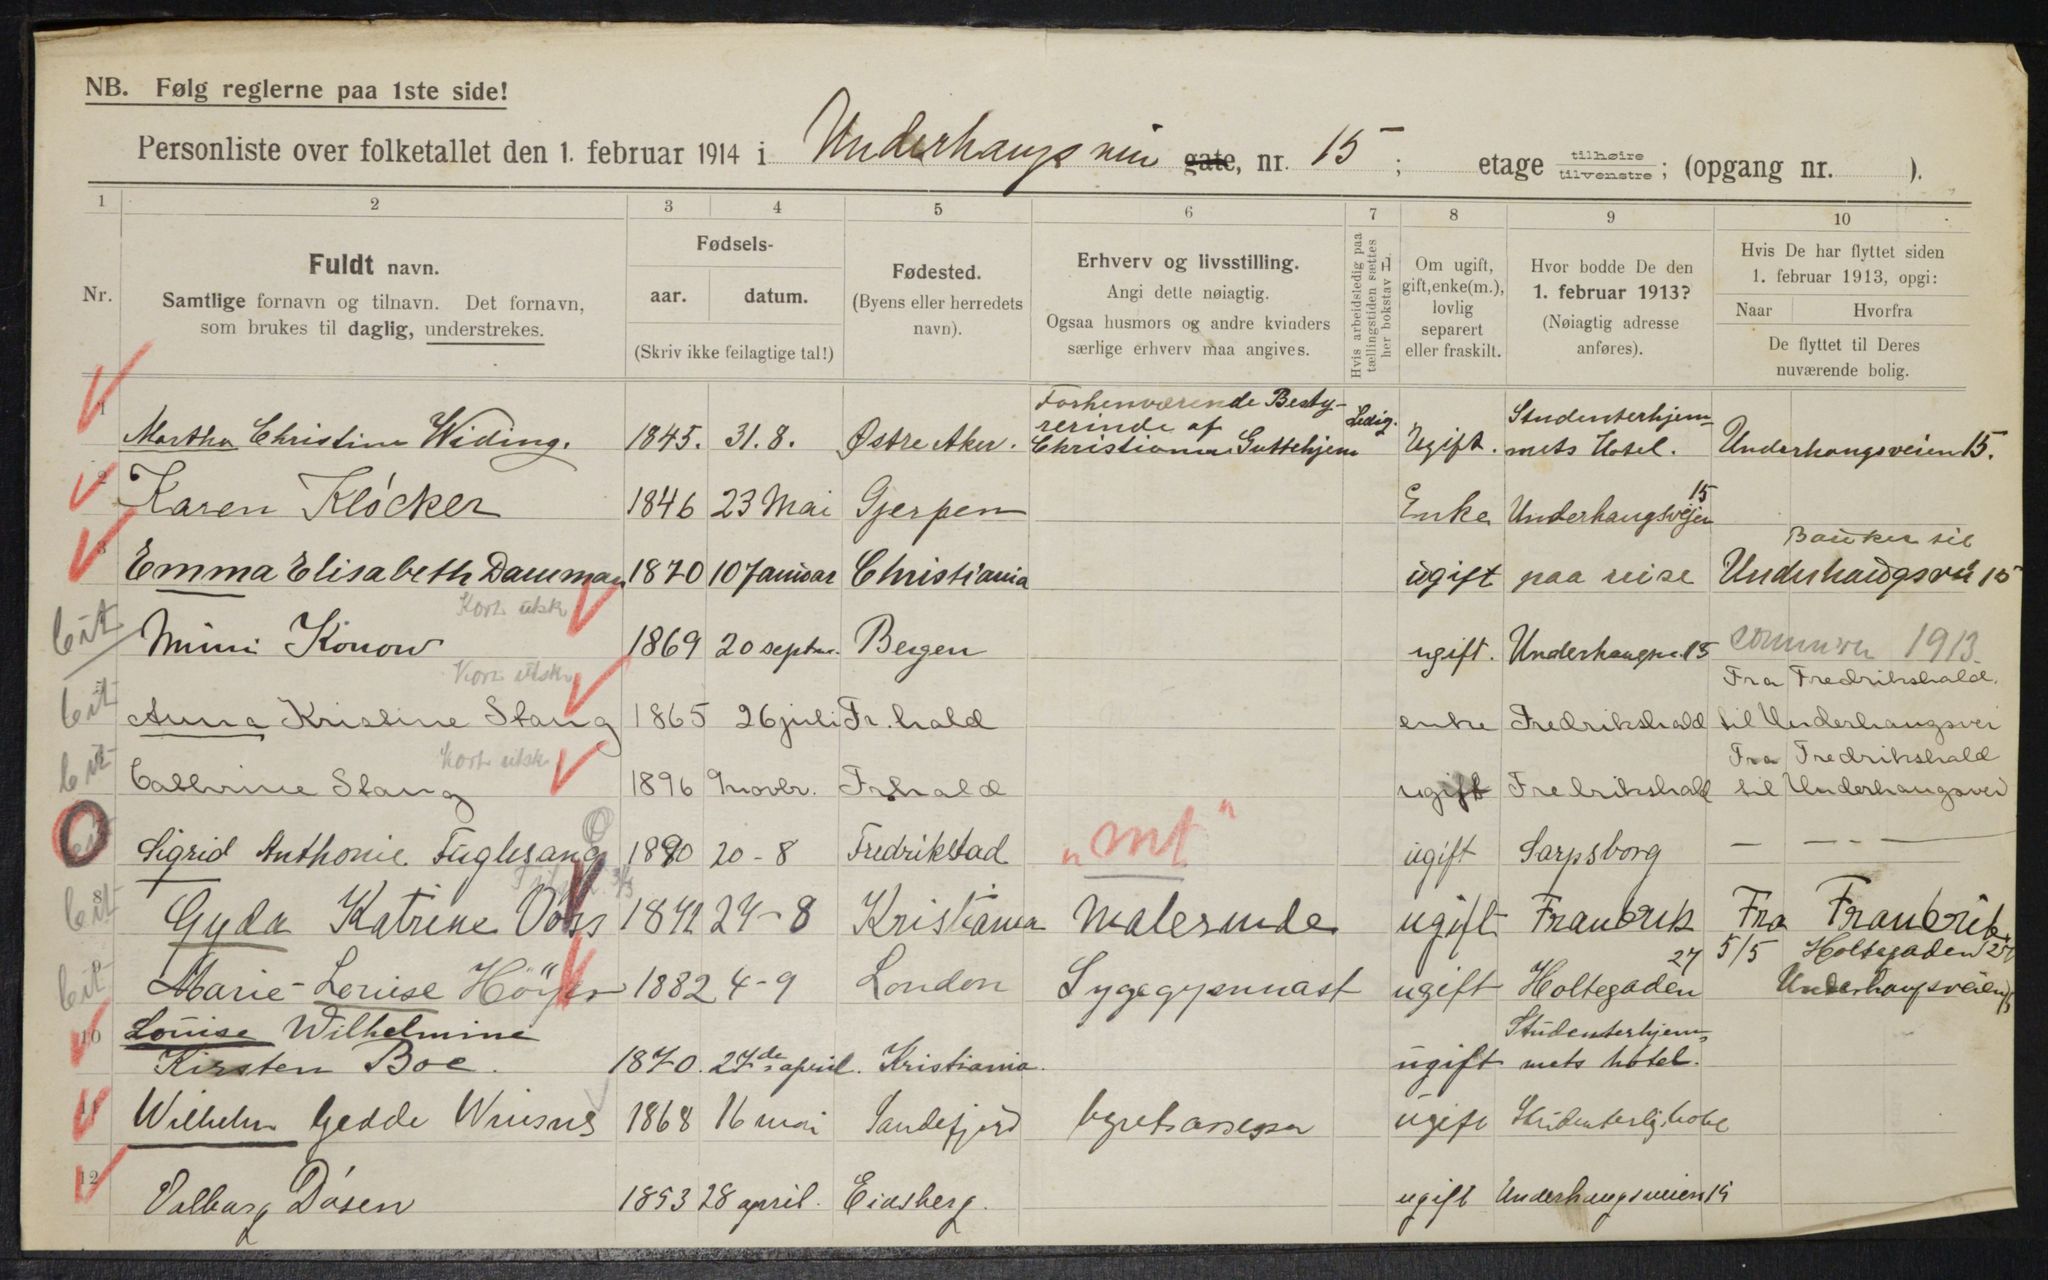 NB. Følg reglerne paa 1ste side!
Personliste over folketallet den 1. februar 1914 i Underhaugsveien gate, nr. 15; etage tilhøire tilvenstre; (opgang nr. ).
1 2 3 4 5 6 7 8 9 10
Nr.
Fuldt navn.
Samtlige fornavn og tilnavn. Det fornavn,
som brukes til daglig, understrekes.
Fødsels-
aar. datum.
(Skriv ikke feilagtige tal!)
Fødested.
(Byens eller herredets
navn).
Erhverv og livsstilling.
Angi dette nøiagtig.
Ogsaa husmors og andre kvinders
særlige erhverv maa angives.
Hvis arbeidsledig paa
tællingstiden sættes
her bokstav L
Om ugift,
gift, enke(m.),
lovlig
separert
eller fraskilt.
Hvor bodde De den
1. februar 1913?
(Nøiagtig adresse
anføres).
Hvis De har flyttet siden
1. februar 1913, opgi:
Naar Hvorfra
De flyttet til Deres
nuværende bolig.
1 Martha Christine Widing. 1845. 31.8. Østre Aker. Forhenværende Besty-
rerinde af
Christiania Guttehjem Ledig. Ugift. Studenterhjem-
mets Hotel. Underhaugsveien 15.
2 Karen Kløcker 1846 23 Mai Gjerpen Enke Underhaugsvejen 15
3 Emma Elisabeth Damman 1870 10 Januar Christiania ugift paa reise
Underhaugsvei 15
Kort utskr
Mimi Konow 1869 20 septbr. Bergen ugift. Underhaugsv. 15 sommeren 1913
Kort utskr
Anna Kristine Stang 1865 26 juli Fr.hald enke Fredrikshald Fra Fredrikshald
til Underhaugsvei
Kort utskr
Cathrine Stang 1896 9 novbr. Frhald ugift Fredrikshald Fra Fredrikshald
til Underhaugsvei
Sigrid Anthonie Fuglesang 1890 20-8 Fredrikstad "mt" ugift Sarpsborg — — —
8 Gyda Katrine 24-8 Kristiania Malerinde ugift Frankrik Fra Frankrik
Marie-Louise Höyer 1882 4-9 London Sygegymnast ugift Holtegaden 27 5/5 Holtegaden 27
Underhaugsveien 15
10 Louise Wilhelmine
Kirsten Boe. 1870. 27de april. Kristiania. ugift Studenterhjem-
mets hotel.
11 Wilhelm Gedde 1868 16 mai Sandefjord ugift
12 Valborg Døsen 1853 28 april. Eidsberg. ugift Underhaugsveien 15